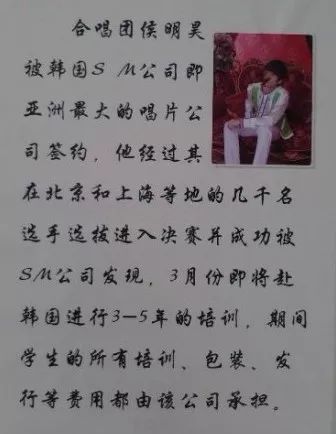 合唱团侯明昊
被韩国SM公司即
亚洲最大的唱片公
司签约，他经过其
在北京和上海等地的几千名
选手选拔进入决赛并成功被
SM公司发现，3月份即将赴
韩国进行3—5年的培训，期间
学生的所有培训、包装、发
行等费用都由该公司承担。